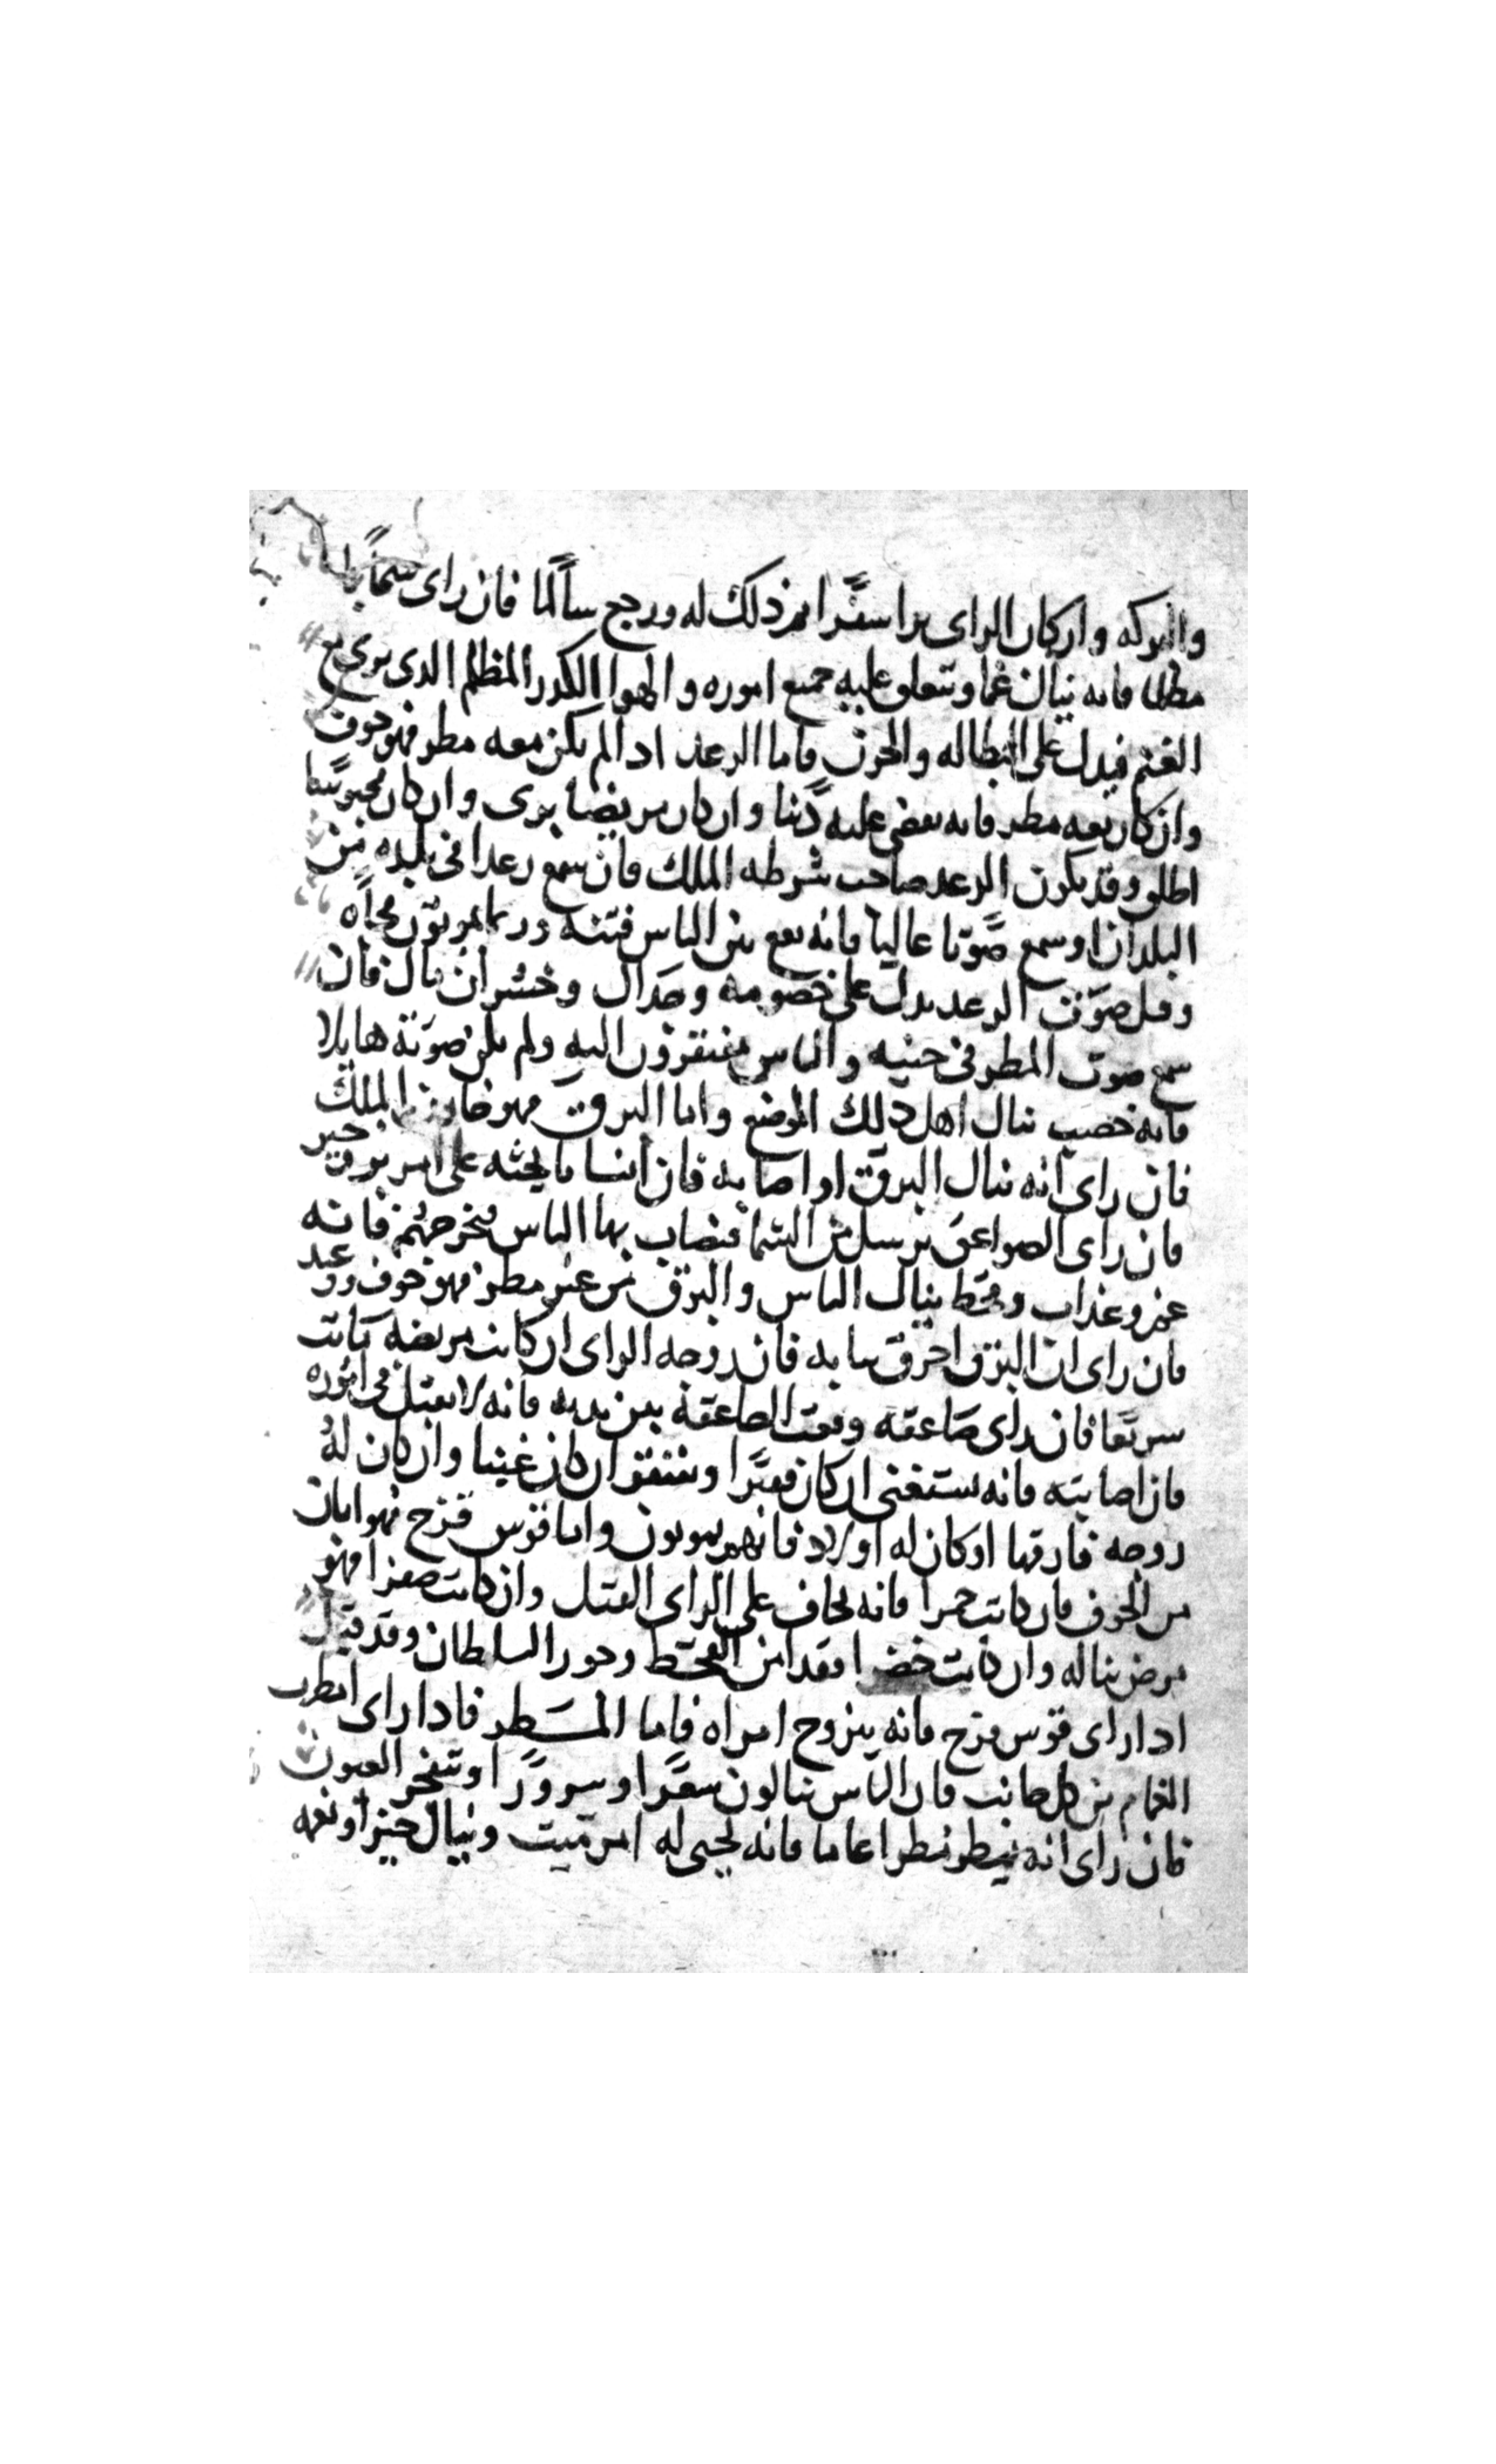 والبركه وان كان الراى يرا سفرا تم ذلك له ورجع سالما فان راى سحابا
مظلما فانه ينال غما وتتعلق عليه جميع اموره والهوا الكدر المظلم الدى يرى مع
الغيم فيدل على البطاله والحزن فاما الرعد ادا لم يكن معه مطر فهو خوف
وان كان معه مطر فانه يقضى عليه دينا وان كان مريضا برى وان كان محبوسا
اطلق وقد يكون الرعد صاحب شرطه الملك فان سمع رعدا فى بلده من
البلدان او سمع صوتا عاليا فانه يقع بين الناس فتنه وربما يموتون فجاه
وقيل صوت الرعد يدل على خصومه وجدال وخسران مال فان
سمع صوت المطر فى حينه والناس مفتقرون اليه ولم يكن صوته هايلا
فانه خصب ينال اهل ذلك الموضع واما البرق فهو خازن الملك
فان راى انه ينال البرق او اصابه فان انسانا يحثه على امر بر وخير
فان راى الصواعق ترسل من السما فتصاب بها الناس فتحرقهم فانه
غم وعذاب وقحط ينال الناس والبرق من غير مطر فهو خوف ورعد
فان راى ان البرق احرق تيابه فان زوجه الراى ان كانت مريضه ماتت
سريعا فان راى صاعقه وقعت الصاعقه بين يديه فانه لا يقبل فى اموره
فان اصابته فانه يستغنى ان كان فقيرا ويفتقر ان كان غنيا وان كان له
زوجه فارقها او كان له اولاد فانهم يموتون واما قوس قزح فهو امان
من الخوف فان كانت حمرا فانه يخاف على الراى القتل وان كانت صفرا فهو
مرض يناله وان كانت خضرا فقد امن القحط وجور السلطان وقد قيل
ادا راى قوس قزح فانه يتزوج امراه فاما المطر فادا راى امطرت
الغمام من كل جانب فان الناس ينالون سفرا وسرورا او تتفجر العيون
فان راى انه يمطر مطرا عاما فانه يحيى له امر ميت وينال خيرا ونعمه